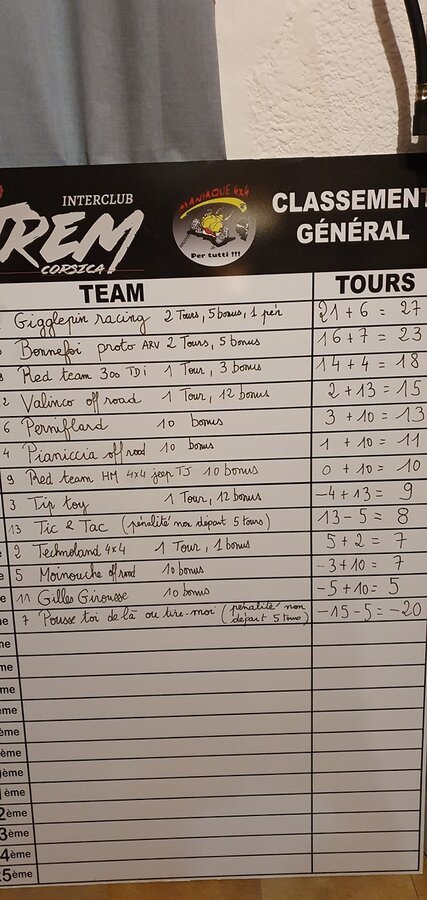 INTERCLUB
TREM
CORSICA
MANIAQUE 4x4
Per tutti !!!
CLASSEMENT
GÉNÉRAL
TEAM TOURS
Gigglepin racing 2 Tours, 5 bonus, 1 pén 21 + 6 = 27
Bonnefoi proto ARV 2 Tours, 5 bonus 16 + 7 = 23
Red team 300 TDi 1 Tour, 3 bonus 14 + 4 = 18
2 Valinco off road 1 Tour, 12 bonus 2 + 13 = 15
6 Perniflard 10 bonus 3 + 10 = 13
4 Pianiccia off road 10 bonus 1 + 10 = 11
9 Red team HM 4x4 jeep TJ 10 bonus 0 + 10 = 10
3 Tip toy 1 Tour, 12 bonus -4 + 13 = 9
13 Tic & Tac (pénalité non départ 5 tours) 13 - 5 = 8
2 Technoland 4x4 1 Tour, 1 bonus 5 + 2 = 7
5 Moinouche off road 10 bonus -3 + 10 = 7
11 Gilles Girousse 10 bonus -5 + 10 = 5
7 Pousse toi de là ou tire-moi (pénalité non départ 5 tours) -15 - 5 = -20
ème
ème
ème
ème
ème
ème
0ème
1ème
2ème
3ème
4ème
25ème